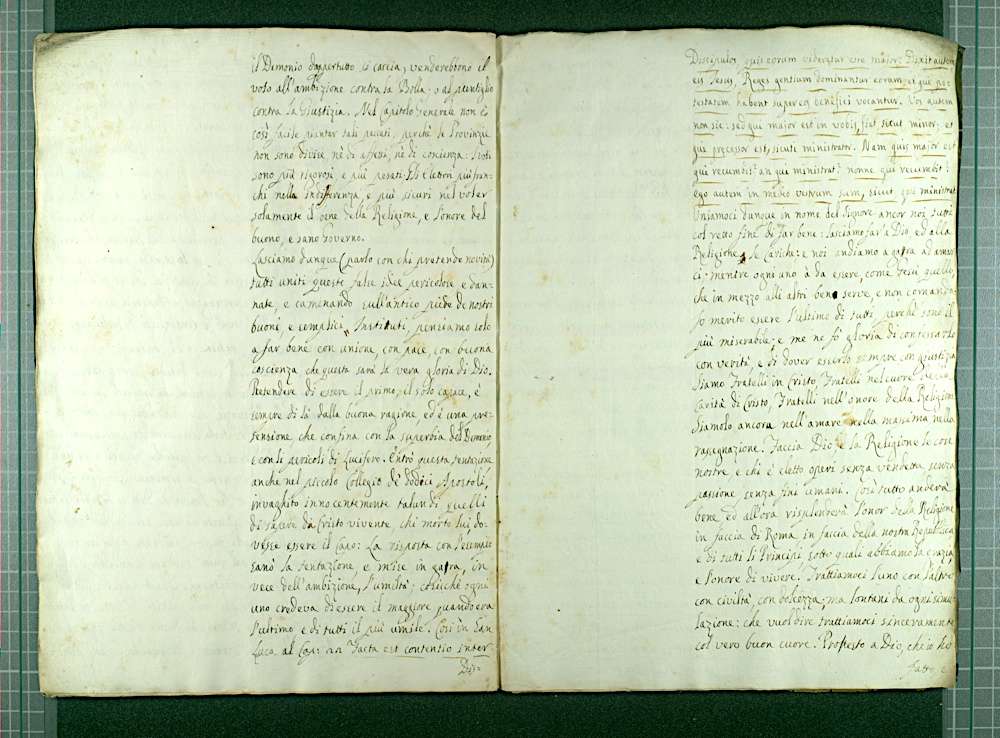 il Demonio dappertutto si caccia, venderebbono il
voto all'ambizione contra la Bolla; o al puntiglio
contra la Giustizia. Nel Capitolo Generale non è
così facile piantar tali peccati, perchè le Provinzie
non sono divise, nè di affetti, nè di coscienza: I voti
sono più rigorosi, e più pesati: Gli elettori più fran-
chi nella Indifferenza, e più sicuri nel voler
solamente il bene della Religione, e l'onore del
buono, e sano Governo.
Lasciamo dunque (parlo con chi pretende novità)
tutti uniti queste false idee pericolose e dan-
nate, e caminando sull'antico piede de nostri
buoni, e semplici Instituti, pensiamo solo
a far bene con unione, con pace, con buona
coscienza, che questa sarà la vera gloria di Dio.
Pretendere di essere il primo, il solo capace, è
sempre di là dalla buona ragione, ed è una pre-
tensione che confina con la superbia del Demonio
e con li pericoli di Lucifero. Entrò questa tentazione
anche nel piccolo Collegio de' dodeci Apostoli,
invaghito innocentemente taluno di quelli
di sapere da Cristo vivente, chi morto lui, do-
vesse essere il Capo: La risposta con l'esempio
sanò la tentazione e mise in gara, in
vece dell'ambizione, l'umiltà; cosichè ogni
uno credeva di essere il maggiore quando era
l'ultimo, e di tutti il più umile. Così in San
Luca al Cap: 22 Facta est contentio inter
Dis-
Discipulos quis eorum videretur esse major: Dixit autem
eis Jesus, Reges gentium dominantur eorum, et qui po-
testatem habent super eos benefici vocantur. Vos autem
non sic: sed qui major est in vobis, fiat sicut minor; et
qui precessor est, sicuti ministrator. Nam quis major est
qui recumbit? an qui ministrat? nonne qui recumbit?
ego autem in medio vestrum sum, sicut qui ministrat.
Uniamoci dunque in nome del Signore ancor noi tutti
col retto fine di far bene: lasciamo far a Dio, ed alla
Religione le Cariche: e noi andiamo a gara ad amar-
ci: mentre ogni uno à da essere, come Gesù quello,
che in mezzo alli altri ben serve, e non comanda.
Io merito essere l'ultimo di tutti, perchè sono il
più miserabile; e me ne fò gloria di confessarlo
con verità, e di dover esserlo sempre con giustizia
Siamo Fratelli in Cristo, Fratelli nel cuore della
Carità di Cristo, Fratelli nell'onore della Religione
Siamolo ancora nell'amare nella massima nella
rassegnazione. Faccia Dio, e la Religione le cose
nostre, e chi è eletto operi senza vendetta, senza
passione senza fini umani. Così tutto anderà
bene ed all'ora risplenderà l'onor della Religione
in faccia di Roma, in faccia della nostra Republica
e di tutti li Principi sotto quali abbiamo la grazia,
e l'onore di vivere. Trattiamoci l'uno con l'altro
con civiltà, con dolcezza; ma lontani da ogni simu-
lazione: che vuol dire trattiamoci sinceramente
col vero buon cuore. Protesto a Dio, ch'io hò
fatto